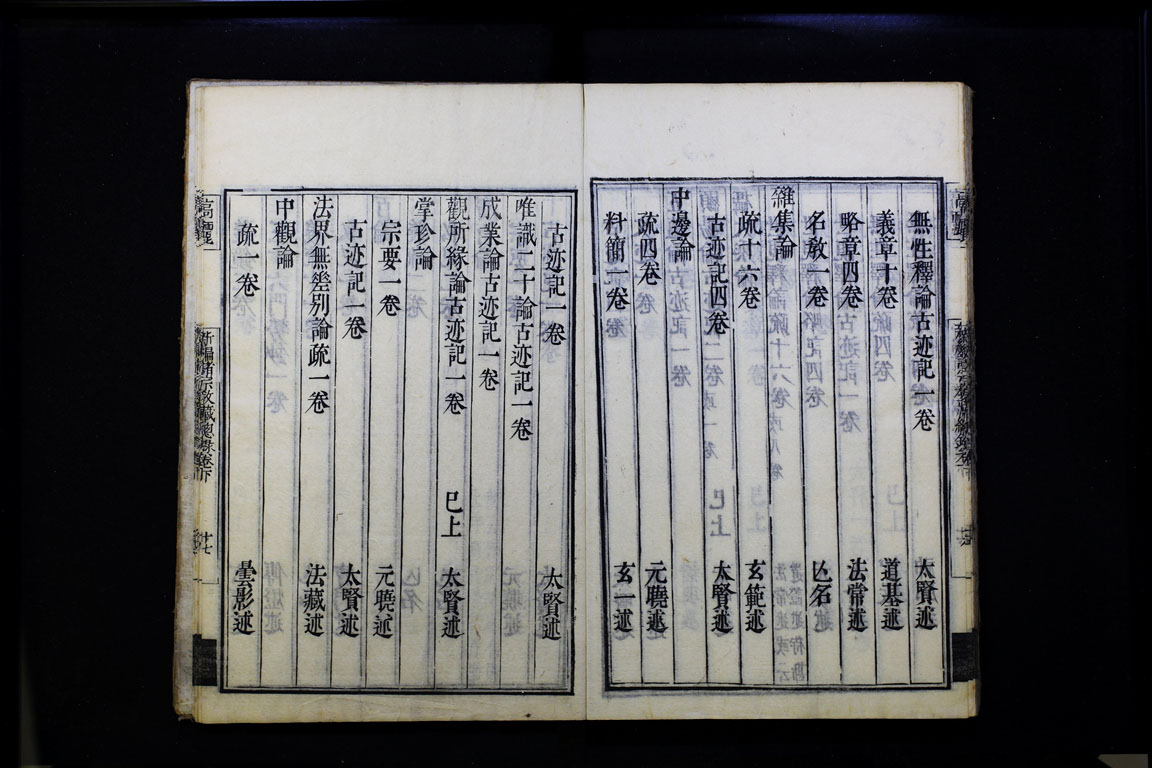 無性釋論古迹記一卷 太賢述
義章十卷 道基述
略章四卷 法常述
名教一卷 亾名
雜集論
疏十六卷 玄範述
古迹記四卷 巳上 太賢述
中邊論
疏四卷 元曉述
料簡一卷 玄一述
古迹記一卷 太賢述
唯識二十論古迹記一卷
成業論古迹記一卷
觀所緣論古迹記一卷 巳上 太賢述
掌珍論
宗要一卷 元曉述
古迹記一卷 太賢述
法界無差別論疏一卷 法藏述
中觀論
疏一卷 曇影述
高麗
新編諸宗教藏總録卷下
十七